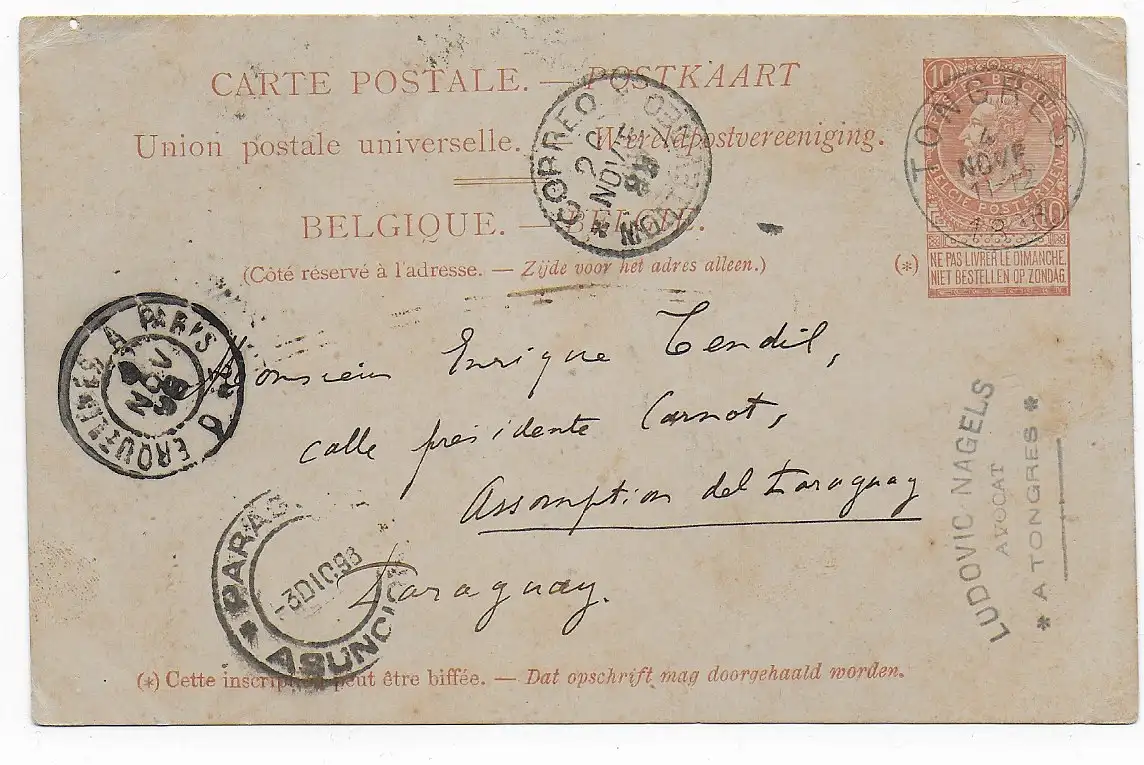 CARTE POSTALE. — POSTKAART
Union postale universelle. — Wereldpostvereeniging.
BELGIQUE. — BELGIE.
(Côté réservé à l'adresse. — Zijde voor het adres alleen.)
10
BELGIE POSTERIJEN
10
(*)
NE PAS LIVRER LE DIMANCHE
NIET BESTELLEN OP ZONDAG
TONGRES
4
NOVE
11-12
CORREO
20
NOV
MONTEVIDEO
ERQUELINES A PARIS
Monsieur Enrique Tendil,
calle presidente Carnot,
Assomption del Paraguay
Paraguay.
PARAG.
-3DIC98
ASUNCION
LUDOVIC NAGELS
AVOCAT
* A TONGRES *
(*) Cette inscription peut être biffée. — Dat opschrift mag doorgehaald worden.